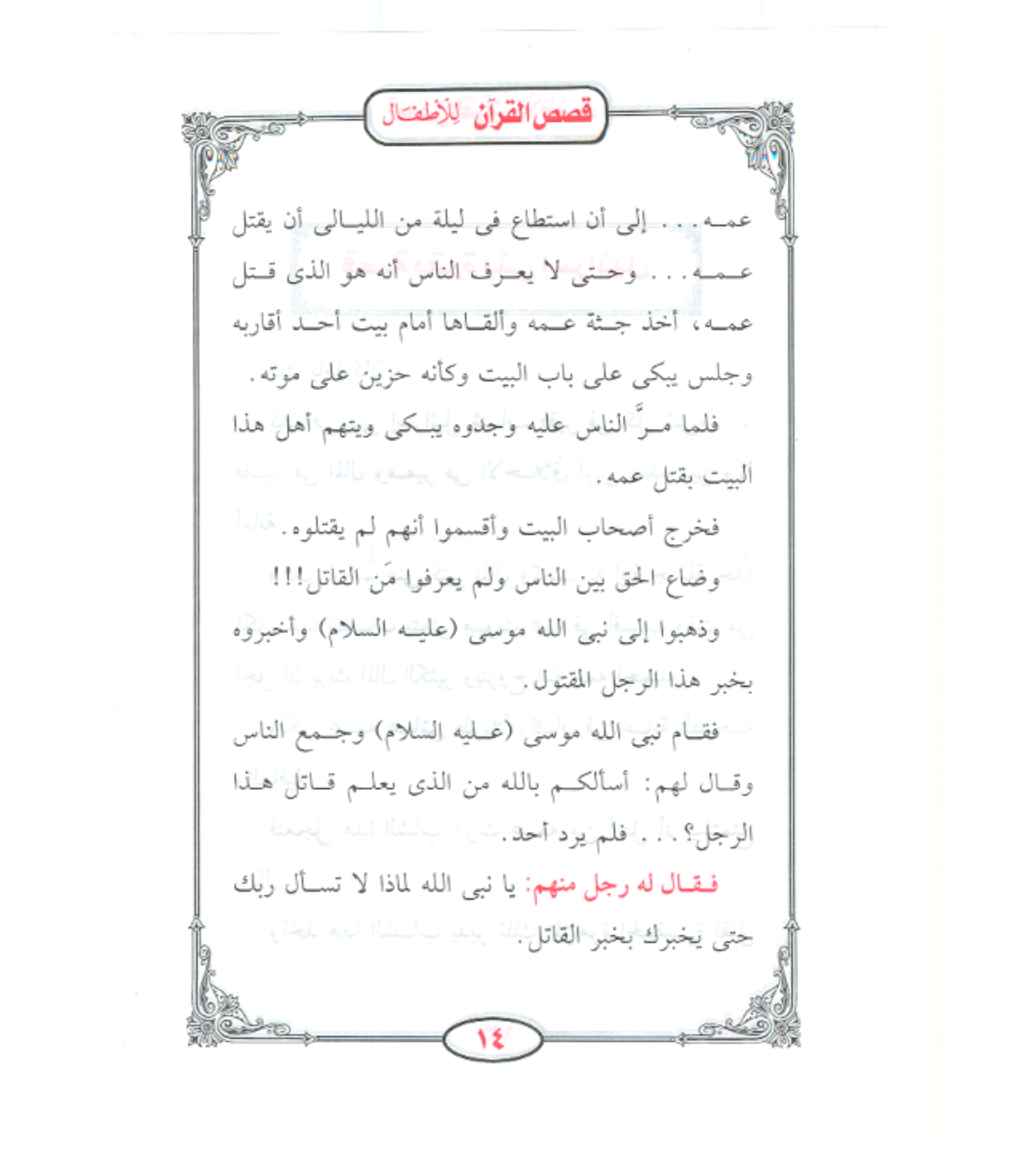 قصص القرآن للأطفال
عمـه... إلى أن استطاع فى ليلة من الليـالى أن يقتل
عـمـه... وحـتـى لا يعـرف الناس أنه هو الذى قـتل
عمـه، أخذ جـثة عـمه وألقـاها أمام بيت أحـد أقاربه
وجلس يبكى على باب البيت وكأنه حزين على موته.
فلما مـرَّ الناس عليه وجدوه يبـكى ويتهم أهل هذا
البيت بقتل عمه.
فخرج أصحاب البيت وأقسموا أنهم لم يقتلوه.
وضاع الحق بين الناس ولم يعرفوا مَن القاتل!!!
وذهبوا إلى نبى الله موسى (عليـه السلام) وأخبروه
بخبر هذا الرجل المقتول.
فقـام نبى الله موسى (عـليه السلام) وجـمع الناس
وقـال لهم: أسألكـم بالله من الذى يعلـم قـاتل هـذا
الرجل؟... فلم يرد أحد.
فـقـال له رجل منهم: يا نبى الله لماذا لا تسـأل ربك
حتى يخبرك بخبر القاتل.
١٤